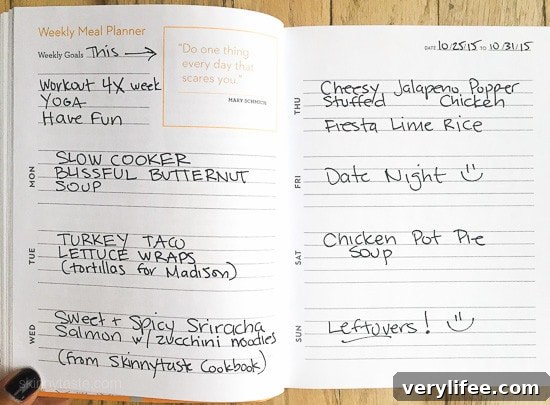 Weekly Meal Planner
Weekly Goals This →
Workout 4x week
YOGA
Have Fun
"Do one thing
every day that
scares you."
MARY SCHMICH
MON
SLOW COOKER
BLISSFUL BUTTERNUT
SOUP
TUE
TURKEY TACO
LETTUCE WRAPS
(tortillas for Madison)
WED
Sweet + Spicy Sriracha
Salmon w/ zucchini noodles
(from Skinnytaste Cookbook)
skinnytaste.com
DATE 10/25/15 TO 10/31/15
THU
Cheesy Jalapeno Popper
Stuffed Chicken
Fiesta Lime Rice
FRI
Date Night
SAT
Chicken Pot Pie
Soup
SUN
Leftovers!
verylifee.com